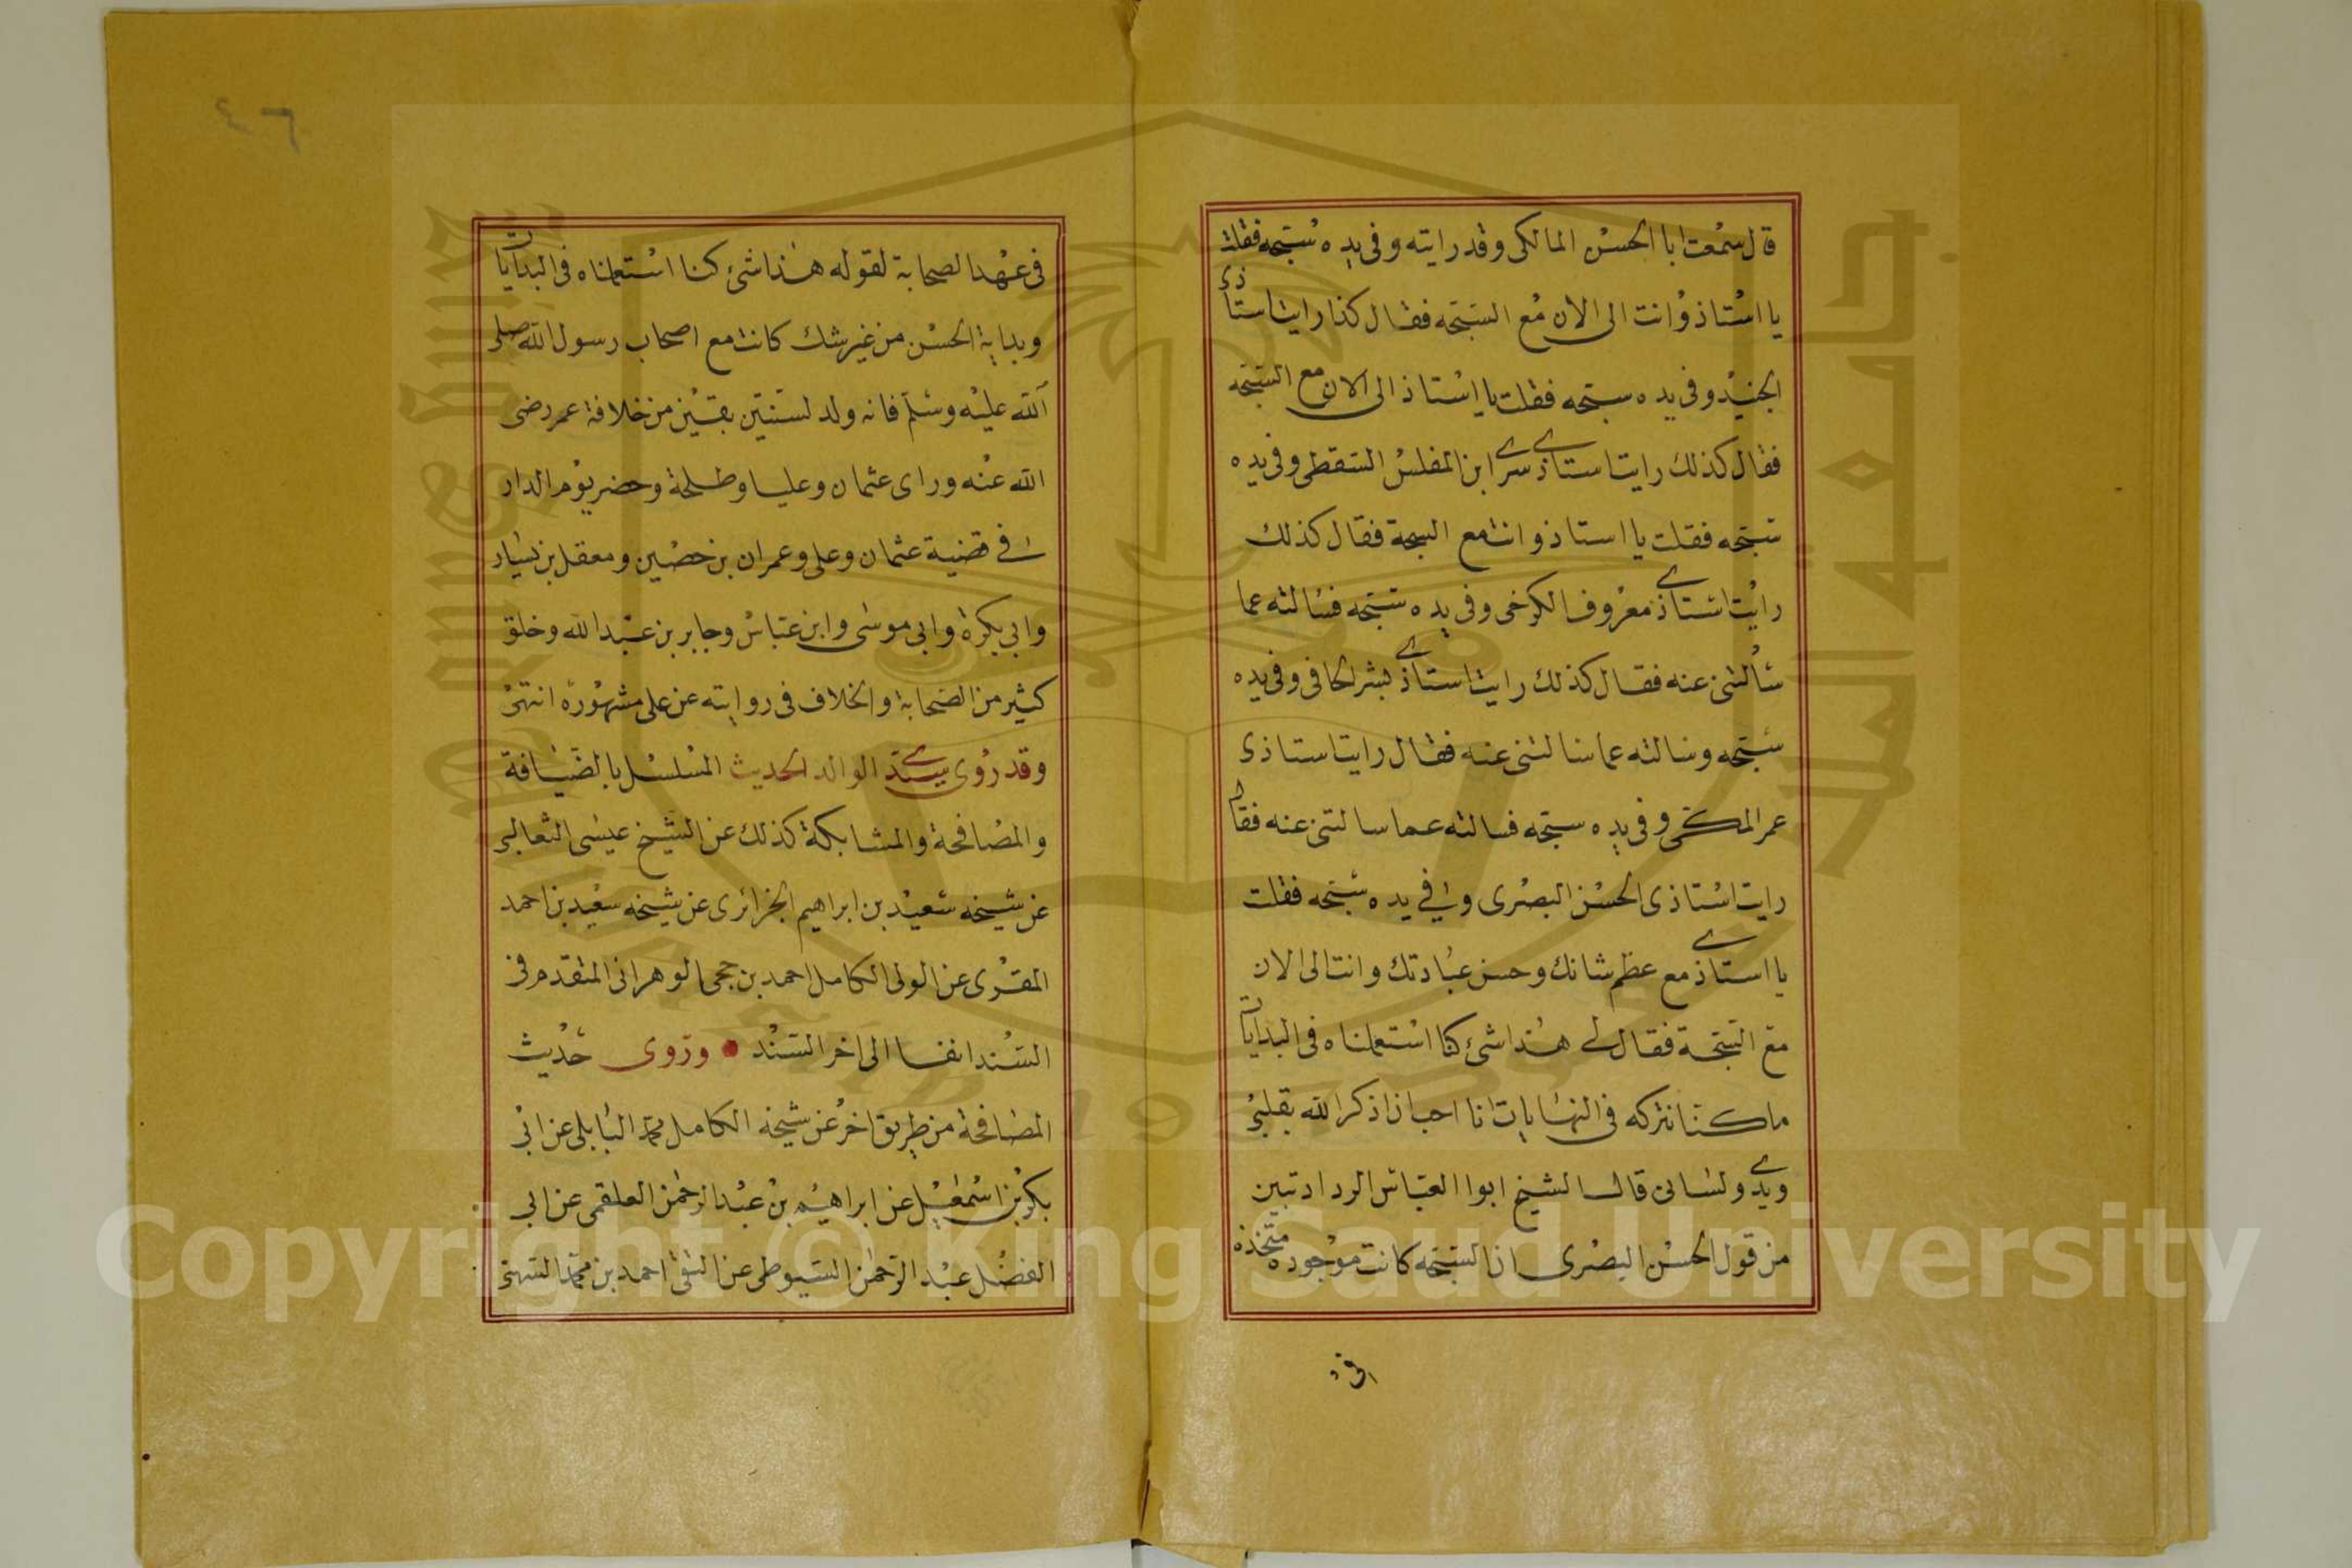 قال سمعت ابا الحسن المالكى وقد رايته وفى يده سبحه فقلت
يا استاذ وانت الى الان مع السبحه فقال كذا رايت استاذى
الجنيد وفى يده سبحه فقلت يا استاذ الى الان مع السبحه
فقال كذلك رايت استاذى سرى ابن المفلس السقطى وفى يده
سبحه فقلت يا استاذ وانت مع السبحة فقال كذلك
رايت استاذى معروف الكرخى وفى يده سبحه فسالته عما
سألتنى عنه فقال كذلك رايت استاذى بشر الحافى وفى يده
سبحه وسالته عما سالتنى عنه فقال رايت استاذى
عمر المكى وفى يده سبحه فسالته عما سالتنى عنه فقال
رايت استاذى الحسن البصرى وفي يده سبحه فقلت
يا استاذى مع عظم شانك وحسن عبادتك وانت الى الان
مع السبحة فقال لى هذا شئ كنا استعملناه فى البدايات
ما كنا نتركه فى النهايات انا احب ان اذكر الله بقلبى
ويدى ولسانى قال الشيخ ابوا العباس الرداد تبين
من قول الحسن البصرى ان السبحه كانت موجوده متخذه
فى
فى عهد الصحابة لقوله هذا شئ كنا استعملناه فى البدايات
وبداية الحسن من غير شك كانت مع اصحاب رسول الله صلى
الله عليه وسلم فانه ولد لسنتين بقين من خلافة عمر رضى
الله عنه وراى عثمان وعليا وطلحة وحضر يوم الدار
في قضية عثمان وعلى وعمران بن حصين ومعقل بن يسار
وابي بكرة وابى موسى وابن عباس وجابر بن عبد الله وخلق
كثير من الصحابة والخلاف فى روايته عن على مشهورة انتهى
وقد روى سيدى الوالد الحديث المسلسل بالضيافة
والمصافحة والمشابكة كذلك عن الشيخ عيسى الثعالبى
عن شيخه سعيد بن ابراهيم الجزائرى عن شيخه سعيد بن احمد
المقرى عن الولى الكامل احمد بن حجى الوهرانى المتقدم فى
السند انفا الى اخر السند • وروى حديث
المصافحة من طريق اخر عن شيخه الكامل محمد البابلى عن ابى
بكر بن اسمعيل عن ابراهيم بن عبد الرحمن العلقمى عن ابى
الفضل عبد الرحمن السيوطى عن التقى احمد بن محمد الشمنى
٤٦
Copyright © King Saud University
جامعة الملك سعود
King Saud University
1957